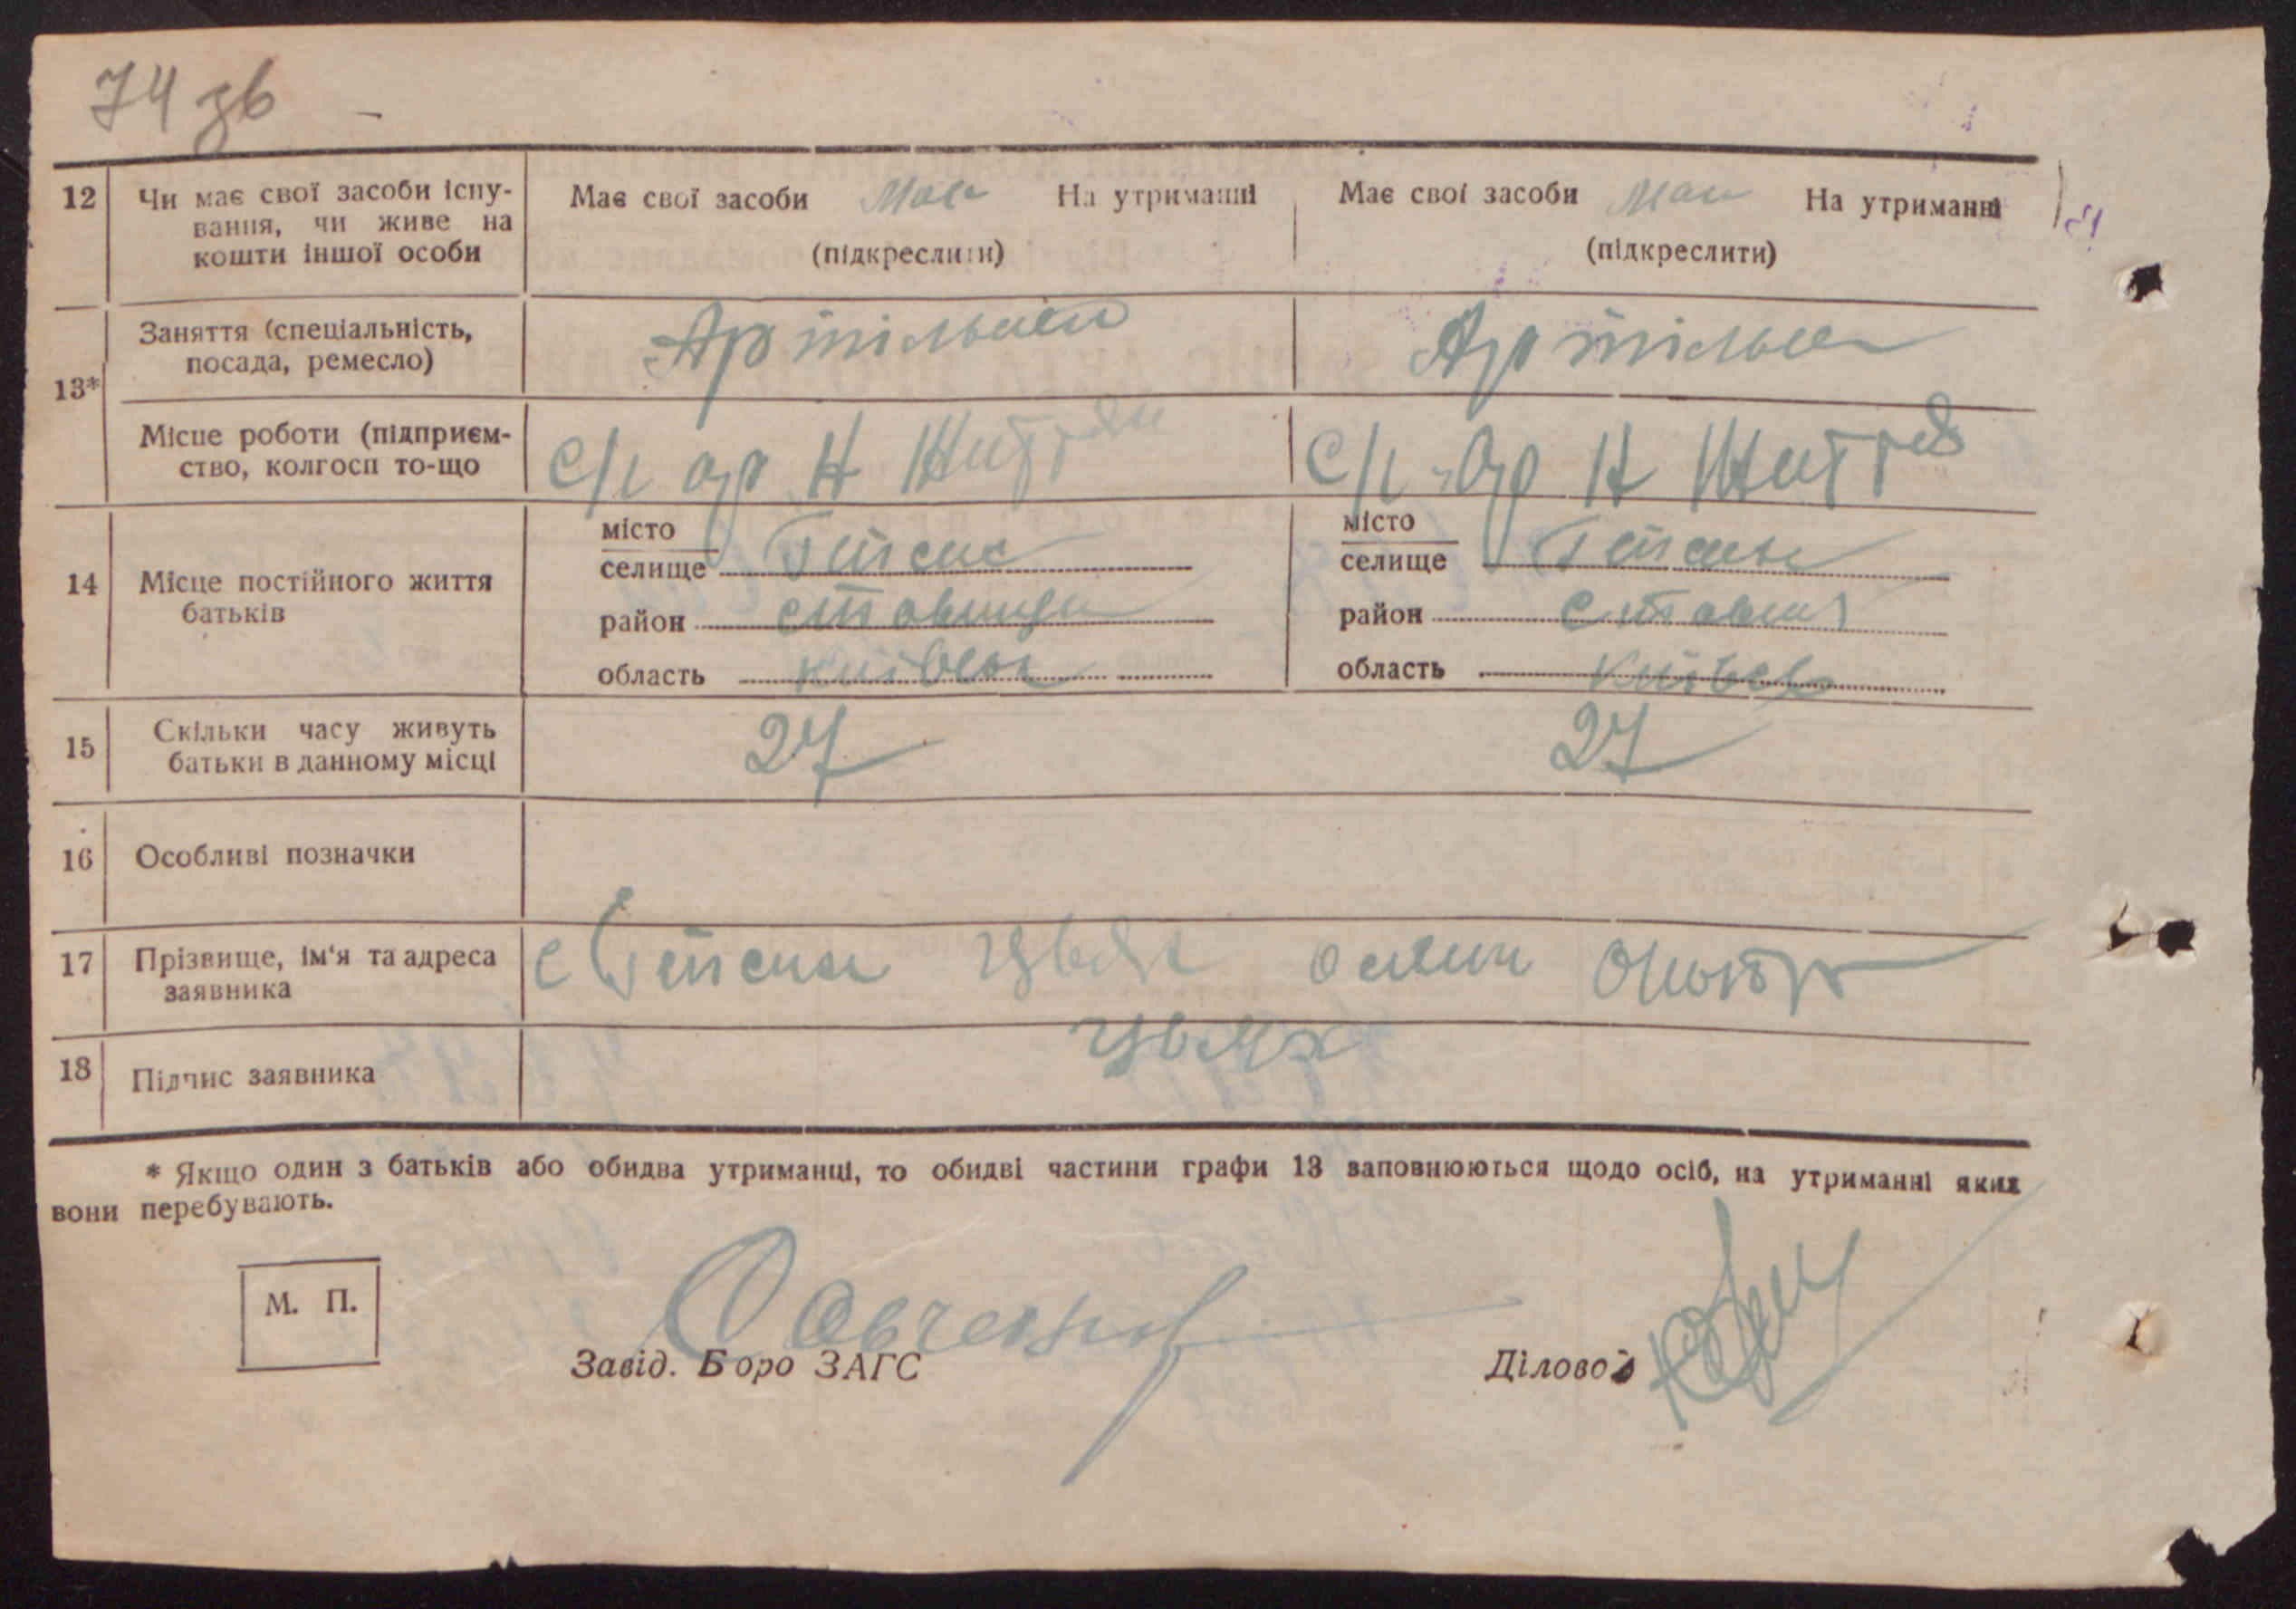 74 зв
12 Чи має свої засоби існу-
вання, чи живе на
кошти іншої особи
Має свої засоби Має На утриманні
(підкреслити)
Має свої засоби Має На утриманні
(підкреслити)
13*
Заняття (спеціальність,
посада, ремесло)
Артільн
Артільн
Місце роботи (підприєм-
ство, колгосп то-що
С/г ар Н Життя
С/г ар Н Життя
14 Місце постійного життя
батьків
місто
селище
район Ставищ
область Київськ
місто
селище
район Ставищ
область Київськ
15 Скільки часу живуть
батьки в данному місці
27
27
16 Особливі позначки
17 Прізвище, ім'я та адреса
заявника
18 Підпис заявника
* Якщо один з батьків або обидва утриманці, то обидві частини графи 13 заповнюються щодо осіб, на утриманні яких
вони перебувають.
М. П.
Завід. Бюро ЗАГС
Діловод